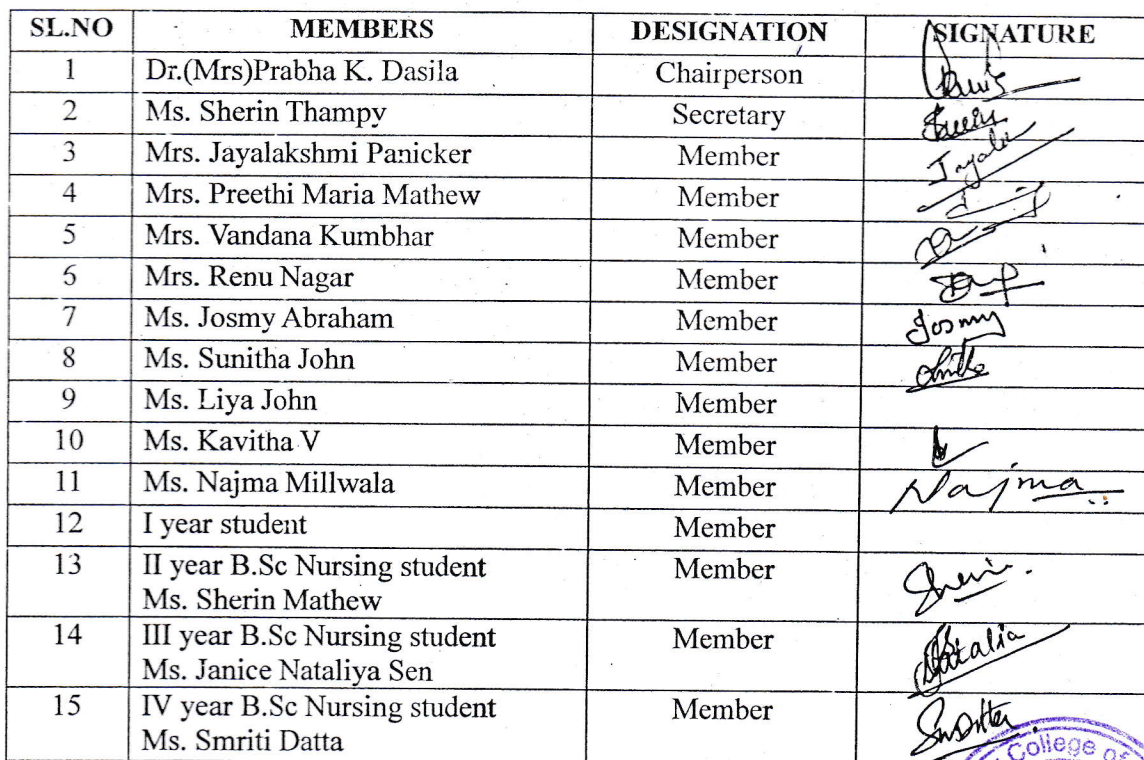 SL.NO MEMBERS DESIGNATION SIGNATURE
1 Dr.(Mrs)Prabha K. Dasila Chairperson
2 Ms. Sherin Thampy Secretary
3 Mrs. Jayalakshmi Panicker Member
4 Mrs. Preethi Maria Mathew Member
5 Mrs. Vandana Kumbhar Member
6 Mrs. Renu Nagar Member
7 Ms. Josmy Abraham Member Josmy
8 Ms. Sunitha John Member
9 Ms. Liya John Member
10 Ms. Kavitha V Member
11 Ms. Najma Millwala Member Najma
12 I year student Member
13 II year B.Sc Nursing student Member
Ms. Sherin Mathew
14 III year B.Sc Nursing student Member
Ms. Janice Nataliya Sen
15 IV year B.Sc Nursing student Member
Ms. Smriti Datta
College of